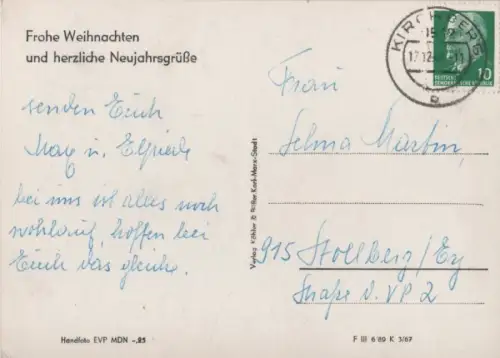 Frohe Weihnachten
und herzliche Neujahrsgrüße
senden Euch
Max u. Elfriede
bei uns ist alles noch
wohlauf, hoffen bei
Euch das gleiche.
Handfoto EVP MDN -,25
Verlag Köhler & Büttner Karl-Marx-Stadt
KIRCHBERG
10
Frau
Selma Martin,
915 Stollberg/Erz
Straße d. VP 2
F III 6/89 K 3/67